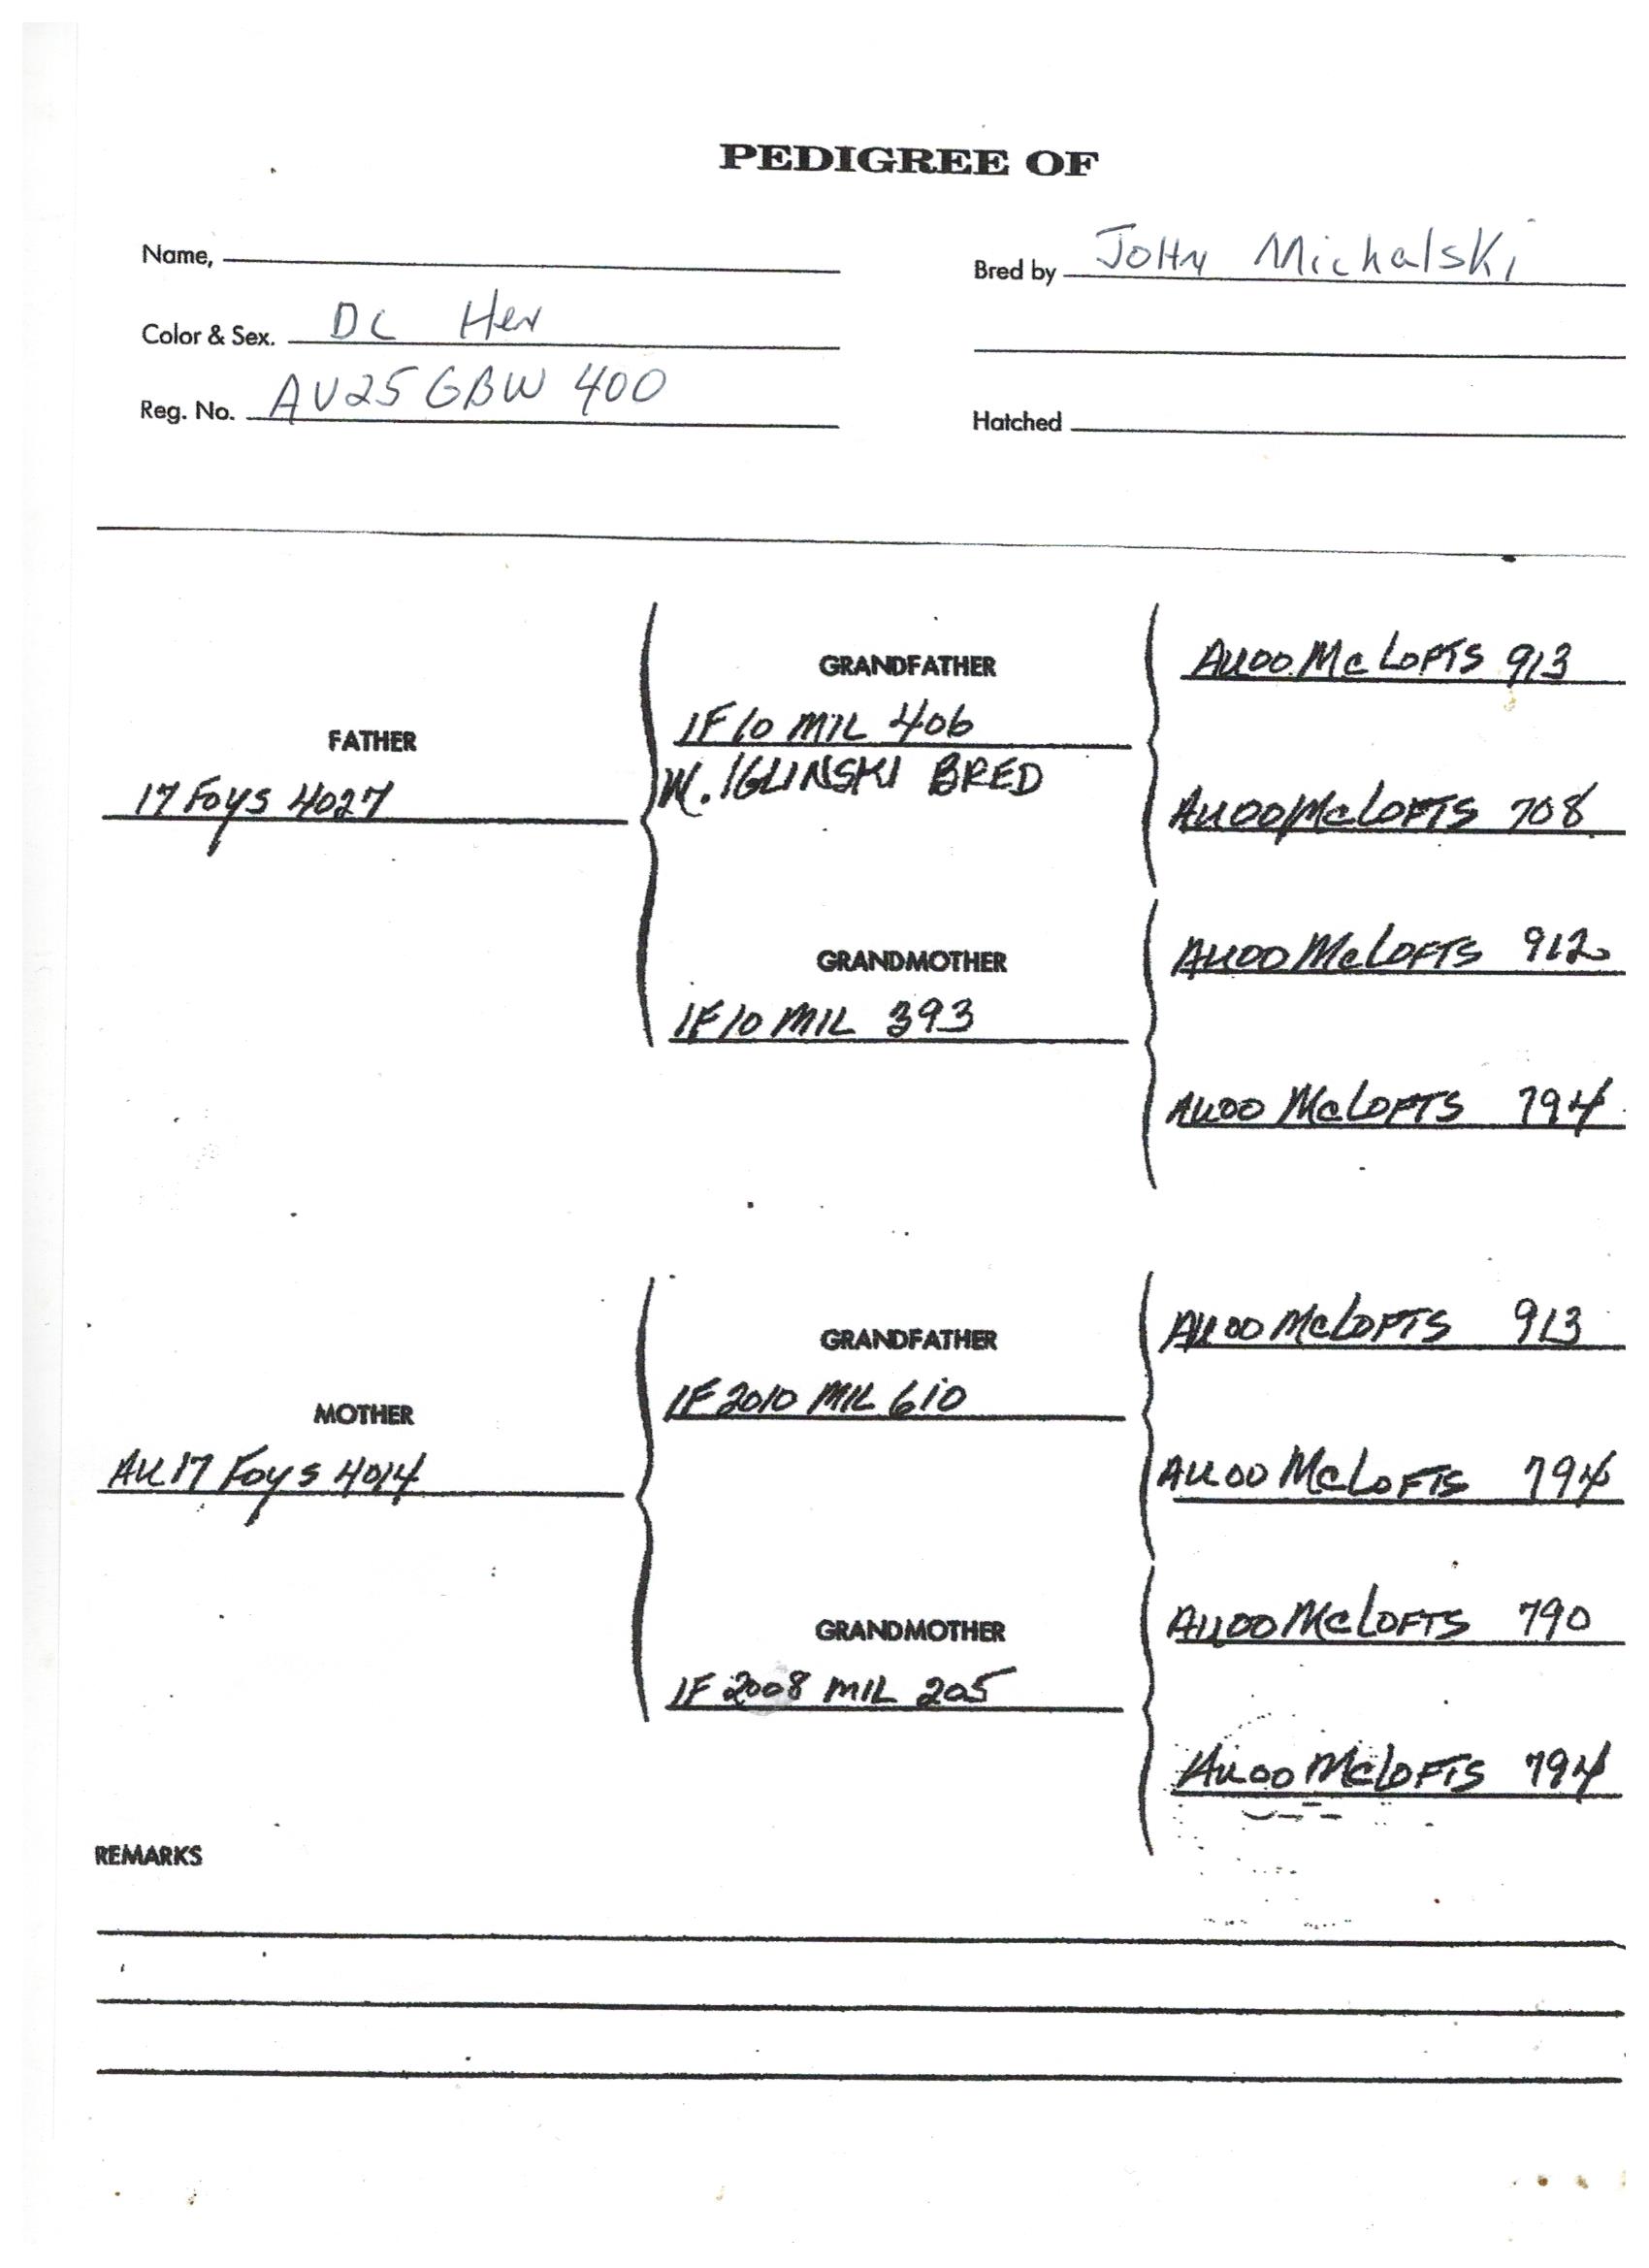 PEDIGREE OF
Name,
Bred by John Michalski
Color & Sex. DC Hen
Reg. No. AU25 GBW 400
Hatched
FATHER
17 Foys 4027
GRANDFATHER
IF 10 MIL 406
W. IGLINSKI BRED
AU00 McLOFTS 913
AU00 McLOFTS 708
GRANDMOTHER
IF 10 MIL 393
AU00 McLOFTS 912
AU00 McLOFTS 794
MOTHER
AU 17 Foys 4014
GRANDFATHER
IF 2010 MIL 610
AU00 McLOFTS 913
AU00 McLOFTS 794
GRANDMOTHER
IF 2008 MIL 205
AU00 McLOFTS 790
AU00 McLOFTS 794
REMARKS